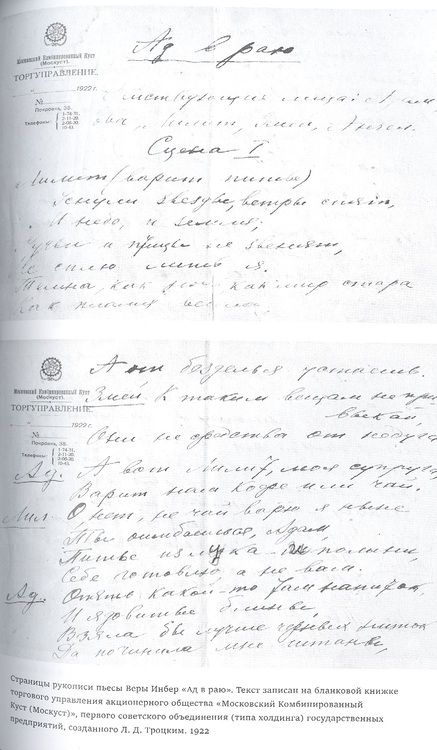 Московский Комбинированный Куст
(Москуст).
ТОРГУПРАВЛЕНИЕ.
1922 г.
№
Покровка, 38.
Телефоны:
Ад в раю
лица:
Лилит, Змей, Ангел.
Сцена I
Лилит (варит питье)
Уснули звезды, ветры спят,
И небо, и земля,
и птицы не звенят,
Не сплю лишь я.
как мир стара
Как пламя
Московский Комбинированный Куст
(Москуст).
ТОРГУПРАВЛЕНИЕ.
1922 г.
№
Покровка, 38.
Телефоны:
А от безделья
Змей К таким вещам не при
выкал.
Они не средства от недуга
Ад. А вот Лилит, моя супруга,
Варит нам кофе или чай.
Лил. О, нет, не чай варю я ныне
Ты ошибаешься, Адам,
Питье из и полыни,
Себе готовлю, а не вам.
Ад. Опять какой-то там напиток,
И ядовитые
Взяла бы лучше черных ниток
Да починила мне штаны,
Страницы рукописи пьесы Веры Инбер «Ад в раю». Текст записан на бланковой книжке
торгового управления акционерного общества «Московский Комбинированный
Куст (Москуст)», первого советского объединения (типа холдинга) государственных
предприятий, созданного Л. Д. Троцким. 1922